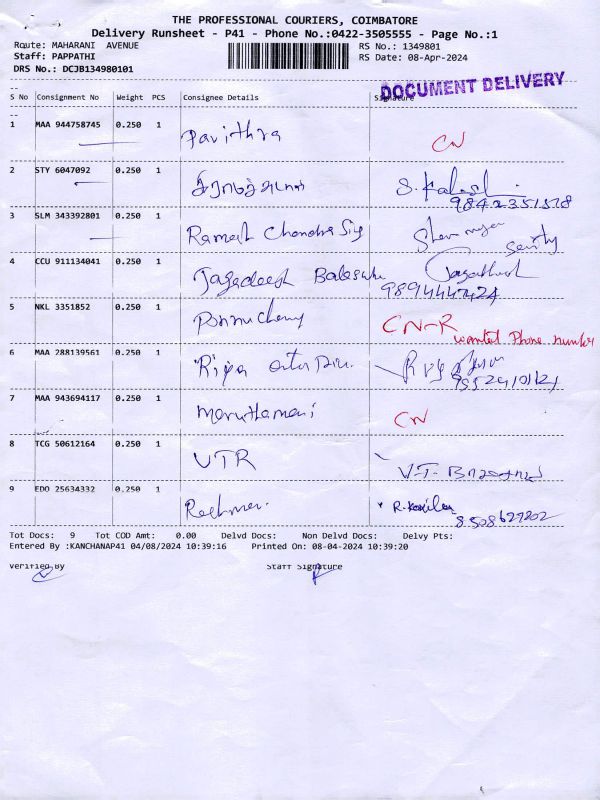 THE PROFESSIONAL COURIERS, COIMBATORE
Delivery Runsheet - P41 - Phone No.:0422-3505555 - Page No.:1
Route: MAHARANI AVENUE RS No.: 1349801
Staff: PAPPATHI RS Date: 08-Apr-2024
DRS No.: DCJB134980101
DOCUMENT DELIVERY
S No Consignment No Weight PCS Consignee Details Signature
1 MAA 944758745 0.250 1 Pavithra CN
2 STY 6047092 0.250 1
3 SLM 343392801 0.250 1 Ramesh Chandra
4 CCU 911134041 0.250 1 Jagadeesh
5 NKL 3351852 0.250 1 CN-R wanted Phone number
6 MAA 288139561 0.250 1 Riya
7 MAA 943694117 0.250 1 Maruthamani CN
8 TCG 50612164 0.250 1 UTR V.T.
9 EDO 25634332 0.250 1
Tot Docs: 9 Tot COD Amt: 0.00 Delvd Docs: Non Delvd Docs: Delvy Pts:
Entered By :KANCHANAP41 04/08/2024 10:39:16 Printed On: 08-04-2024 10:39:20
Verified By Staff Signature